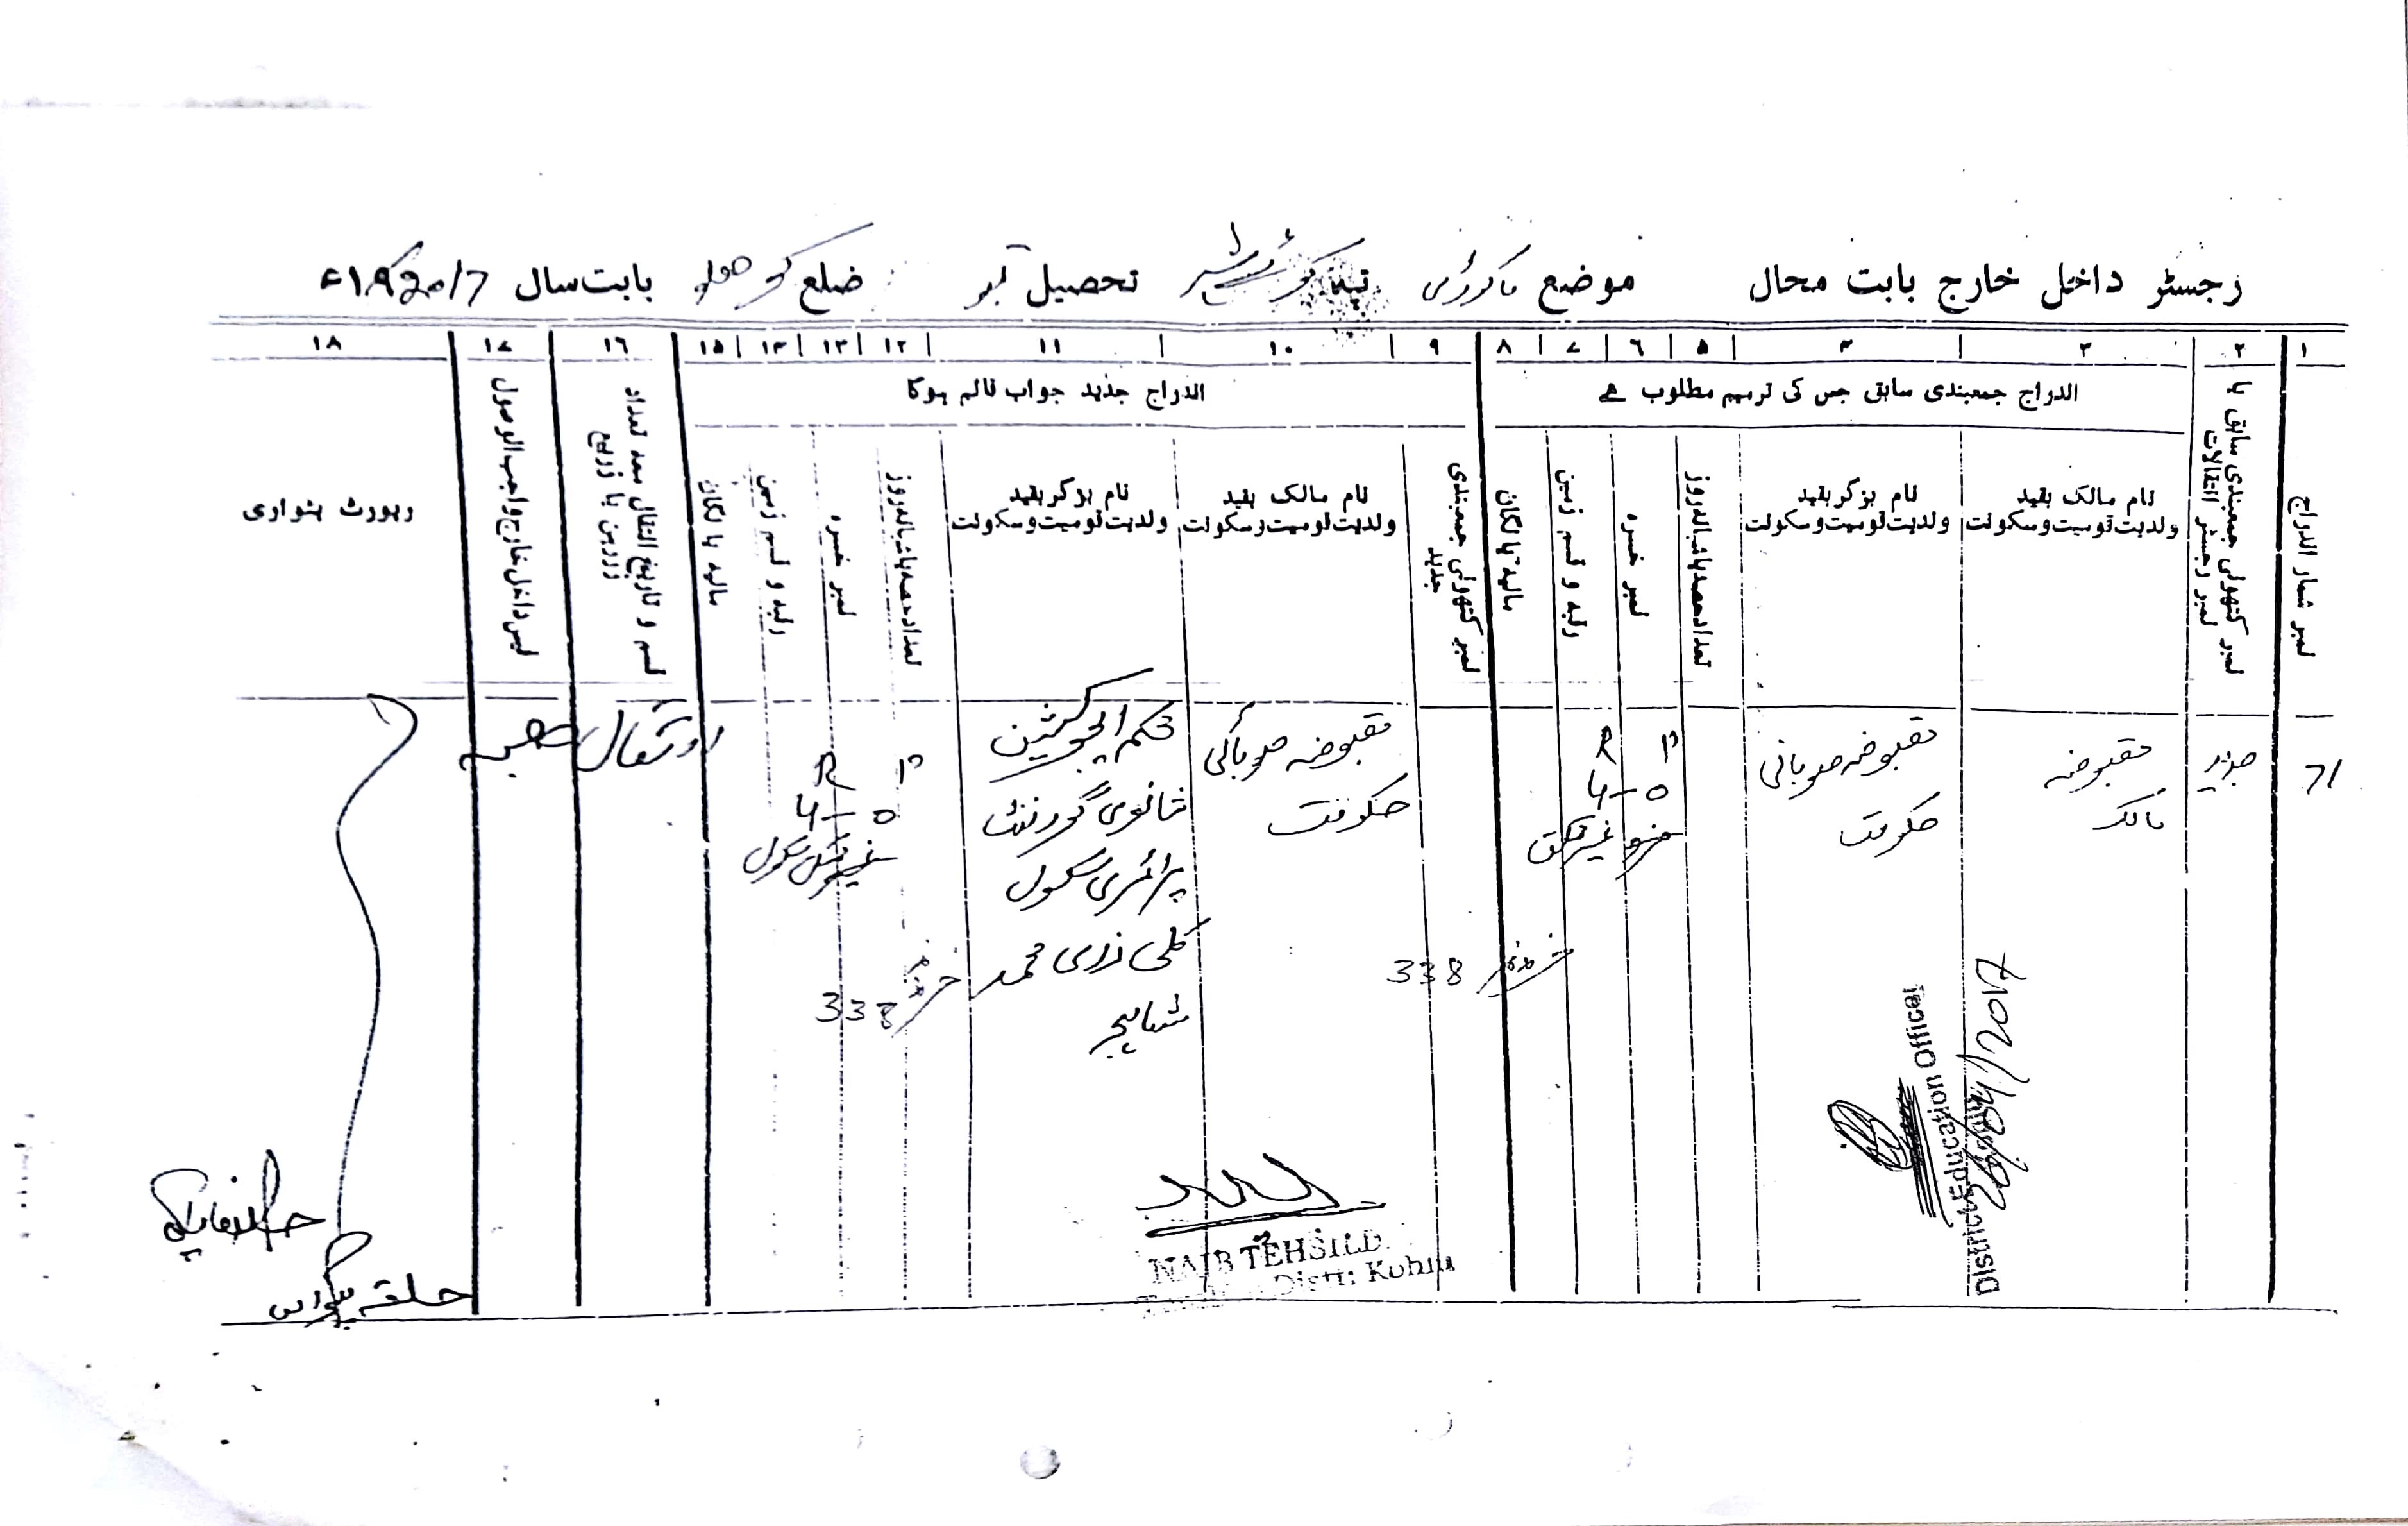 رجسٹر داخل خارج بابت محال موضع تپہ تحصیل ضلع کوہلو بابت سال 2017ء
۱ ۲ ۳ ۴ ۵ ۶ ۷ ۸ ۹ ۱۰ ۱۱ ۱۲ ۱۳ ۱۴ ۱۵ ۱۶ ۱۷ ۱۸
نمبر شمار اندراج
نمبر کتھونی جمعبندی سابق یا نمبر رجسٹر انتقالات
اندراج جمعبندی سابق جس کی ترمیم مطلوب ہے
نام مالک بقید ولدیت قومیت و سکونت
نام بزگر بقید ولدیت قومیت و سکونت
تعداد حصہ یا شبانہ روز
نمبر خسرہ
رقبہ و قسم زمین
مالیہ یا لگان
نمبر کتھونی جمعبندی جدید
اندراج جدید جواب قائم ہوگا
نام مالک بقید ولدیت قومیت و سکونت
نام بزگر بقید ولدیت قومیت و سکونت
تعداد حصہ یا شبانہ روز
نمبر خسرہ
رقبہ و قسم زمین
مالیہ یا لگان
قسم و تاریخ انتقال معہ تعداد زر رہن یا زر بیع
فیس داخل خارج واجب الوصول
رپورٹ پٹواری
71
جدید
مقبوضہ
مالک
مقبوضہ صوبائی
حکومت
P R
0-4
338
مقبوضہ صوبائی
حکومت
محکمہ ایجوکیشن
ثانوی گورنمنٹ
پرائمری سکول
کلی زری محمد
P R
0-4
غیر ممکن سکول
338
انتقال ہبہ
District Education Officer
NAIB TEHSILD
Distt: Kohlu
حلقہ